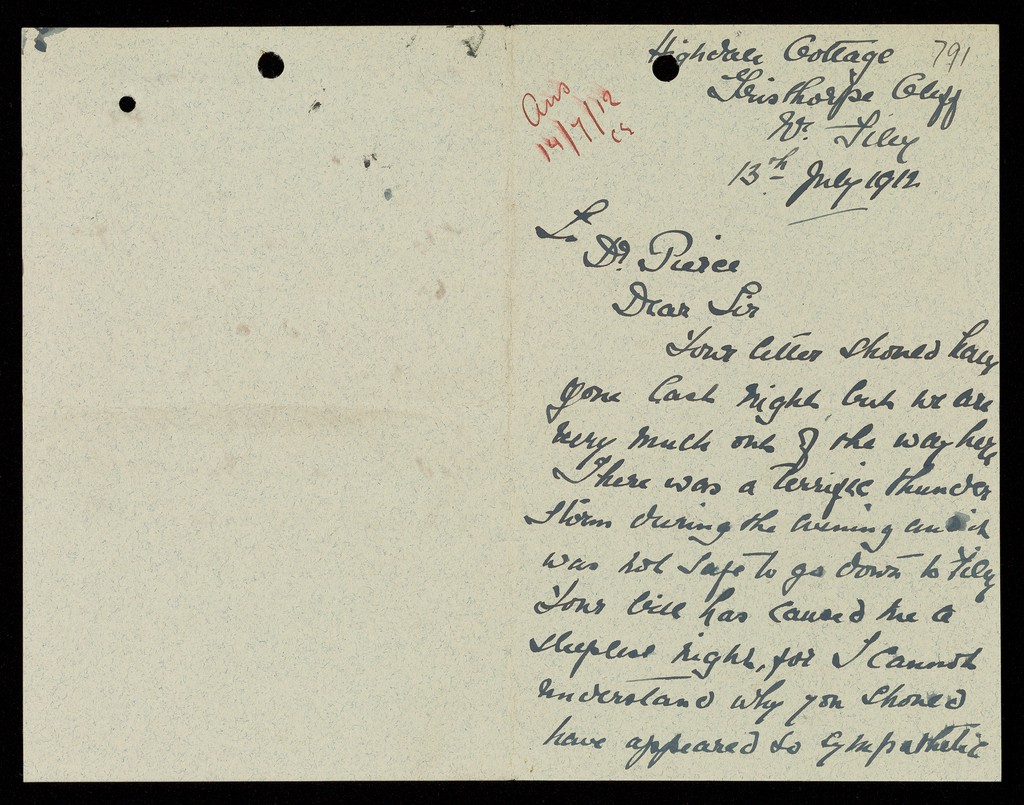 Highdale Cottage 791
Gristhorpe Cliff
Nr. Filey
13th July 1912
Ans
14/7/12
To
Dr. Pierce
Dear Sir
Your letter should have
gone last night but we are
very much out of the way here
There was a terrific thunder
storm during the evening and it
was not safe to go down to Filey
Your bill has caused me a
sleepless night, for I cannot
understand why you should
have appeared so sympathetic